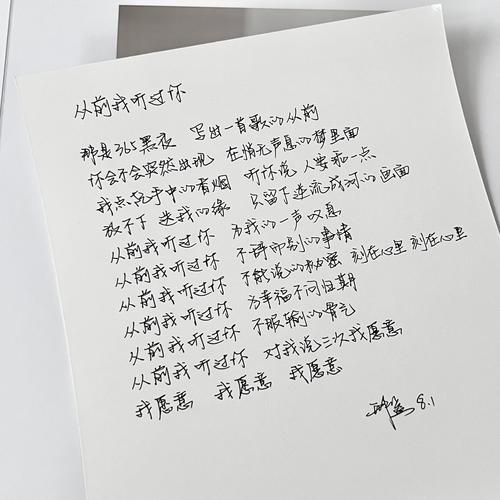 从前我听过你
那是365黑夜 写出一首歌的从前
你会不会突然出现 在悄无声息的梦里面
我点亮手中的香烟 听你说 人要乖一点
放不下 送我的缘 只留下逆流成河的画面
从前我听过你 为我的一声叹息
从前我听过你 不别的事情
从前我听过你 不能说的秘密 刻在心里 刻在心里
从前我听过你 为幸福不问归期
从前我听过你 不服输的骨气
从前我听过你 对我说三次我愿意
我愿意 我愿意 我愿意
8.1